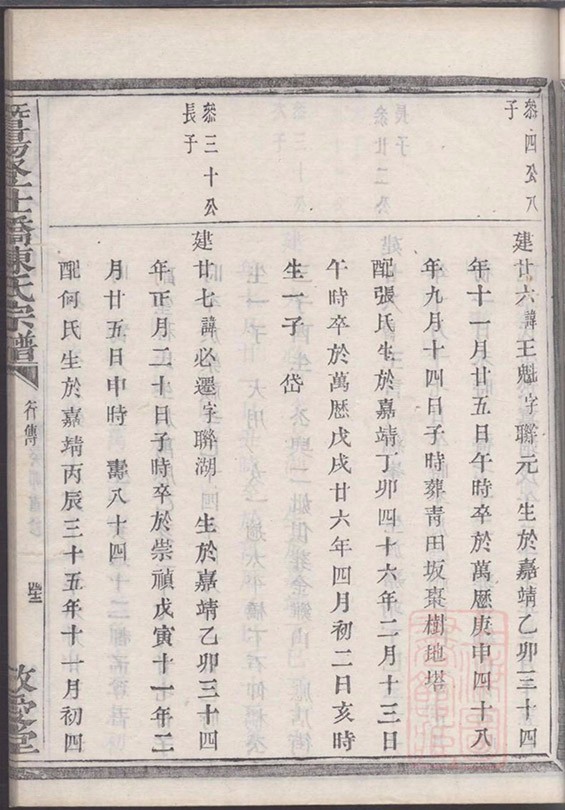 叅四公八
子
建廿六諱王魁字聯元　生於嘉靖乙卯三十四
年十一月廿五日午時卒於萬歷庚申四十八
年九月十四日子時葬青田坂棗樹地塔
配張氏生於嘉靖丁卯四十六年二月十三日
午時卒於萬歷戊戌廿六年四月初二日亥時
生一子　岱
叅三十公
長子
建廿七諱必遷字聯湖　生於嘉靖乙卯三十四
年正月二十日子時卒於崇禎戊寅十一年二
月廿五日申時　壽八十四
配何氏生於嘉靖丙辰三十五年十一月初四
暨陽　橋陳氏宗譜
行傳
敬愛堂